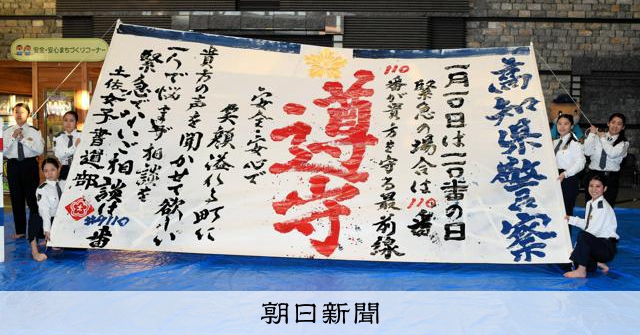 安全・安心まちづくりコーナー
高知県警察
一月一〇日は一一〇番の日
緊急の場合は110番
110番が貴方を守る最前線
遵守
安全・安心で
笑顔溢れる町に
貴方の声を聞かせて欲しい
一人で悩まず相談を
緊急でないご相談は#9110番
土佐女子書道部
朝日新聞